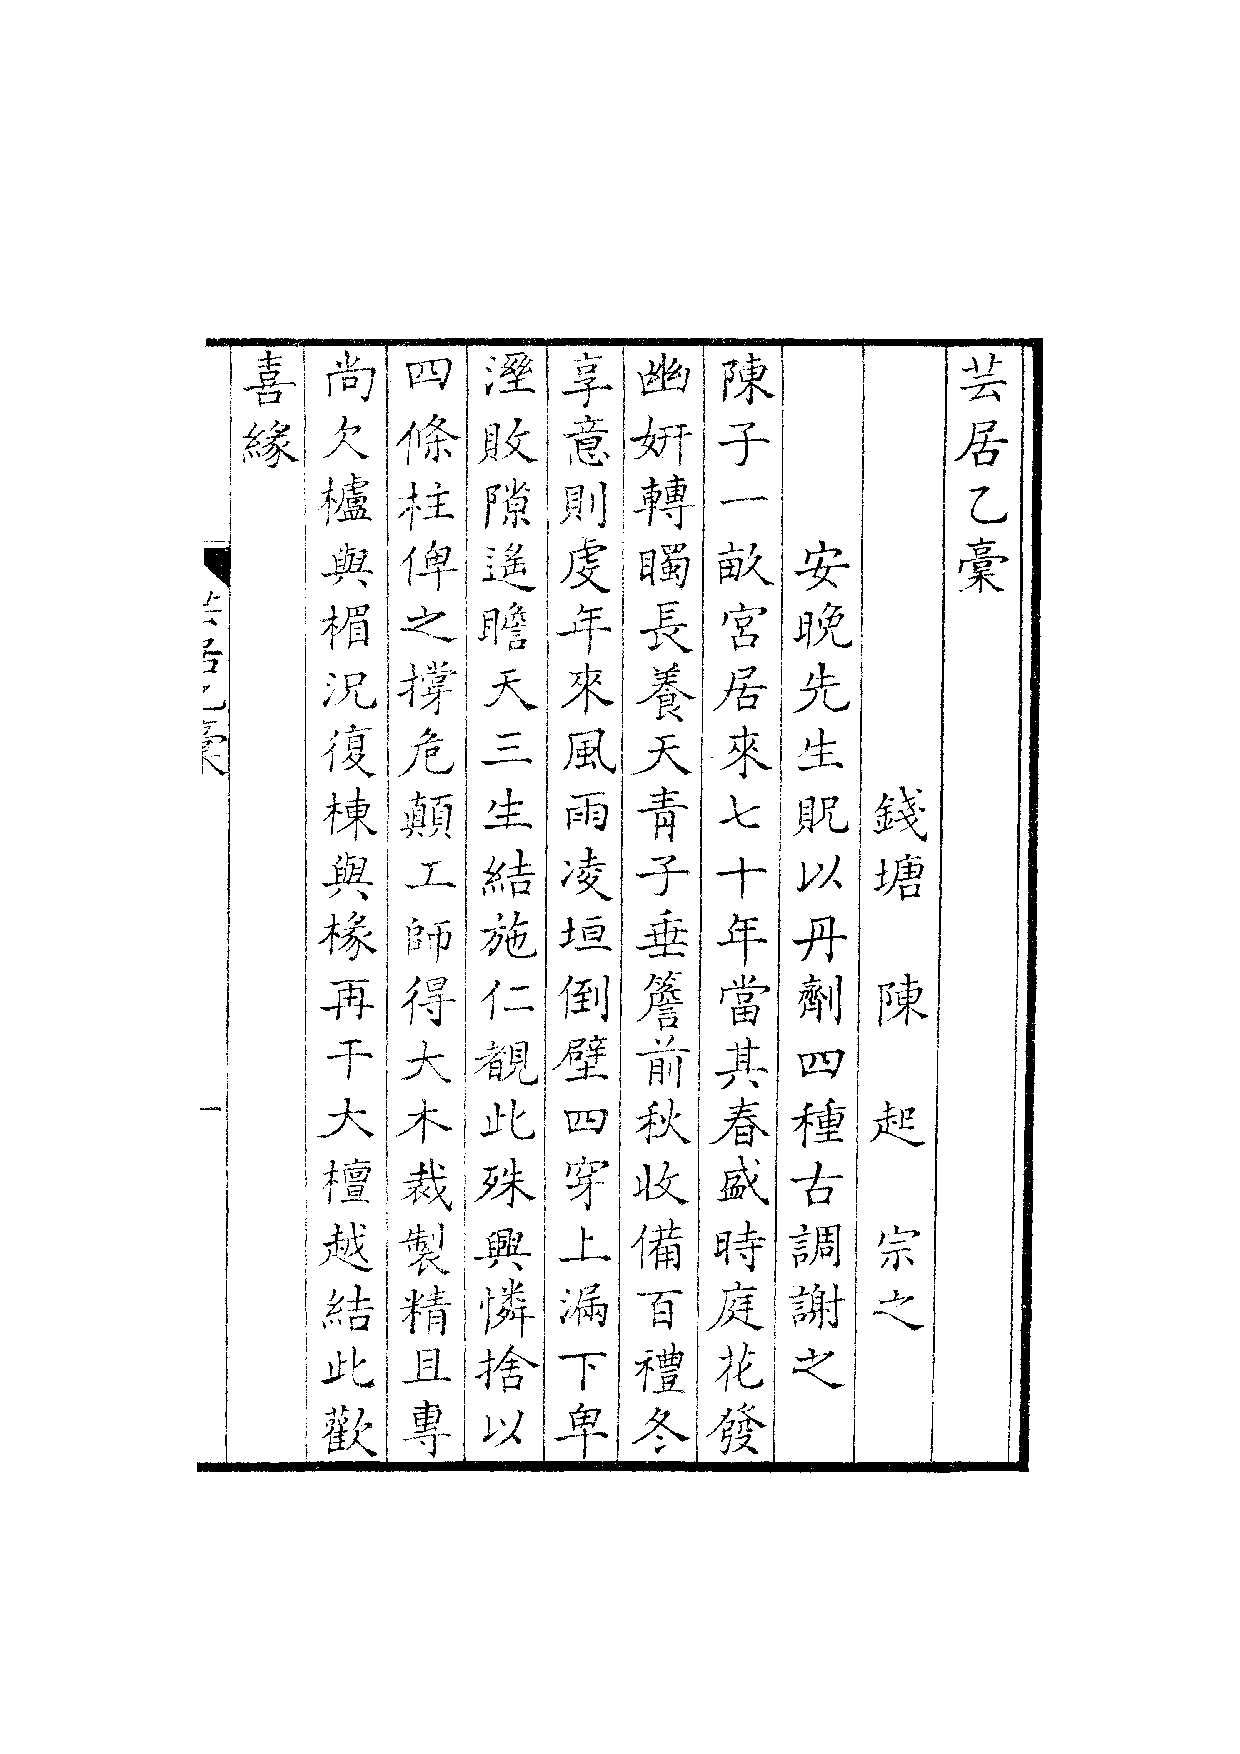 芸居乙藁
錢塘　陳　起　宗之
安晚先生貺以丹劑四種古調謝之
陳子一畝宮居來七十年當其春盛時庭花發
幽妍轉矚長養天青子垂簷前秋收備百禮冬
享意則虔年來風雨凌垣倒壁四穿上漏下卑
溼敗隙遙瞻天三生結施仁覩此殊興憐捨以
四條柱俾之撐危顛工師得大木裁製精且專
尚欠櫨與楣況復棟與椽再干大檀越結此歡
喜緣
芸居乙藁
一